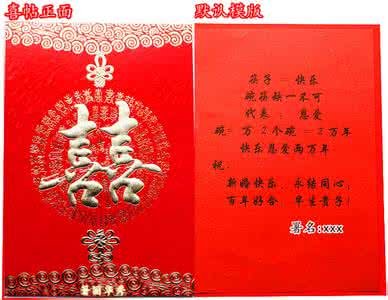 喜帖正面
默认模版
囍
筷子=快乐
碗筷缺一不可
代表：恩爱
碗=万 2个碗=2万年
快乐恩爱两万年
祝：
新婚快乐，永结同心，
百年好合，早生贵子！
署名:xxx